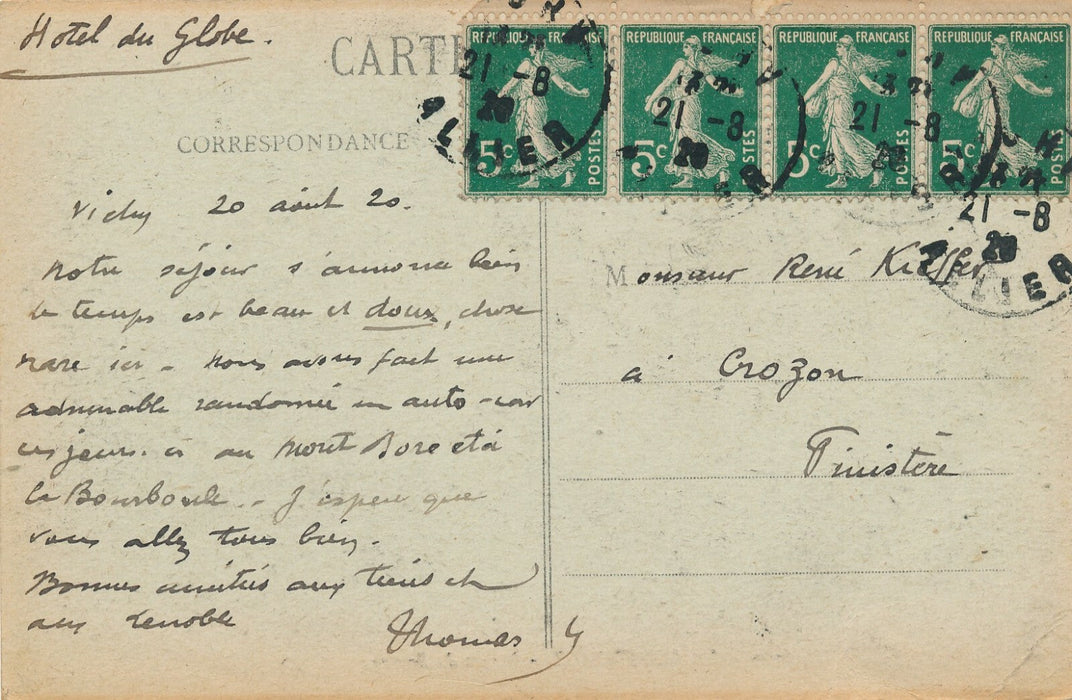 Hotel du Globe.
CARTE
CORRESPONDANCE
RÉPUBLIQUE FRANÇAISE RÉPUBLIQUE FRANÇAISE RÉPUBLIQUE FRANÇAISE RÉPUBLIQUE FRANÇAISE
5c POSTES 5c POSTES 5c POSTES 5c POSTES
21 -8 20 21 -8 20 21 -8 20 21 -8 20
ALLIER
ALLIER
Vichy 20 août 20.
Notre séjour s'annonce bien
le temps est beau et doux, chose
rare ici - nous avons fait une
admirable randonnée en auto-car
ces jours-ci au Mont Dore et à
la Bourboule - J'espère que
vous allez tous bien.
Bonnes amitiés aux tiens et
aux Lenoble
Thomas
Monsieur René Kieffer
à Crozon
Finistère